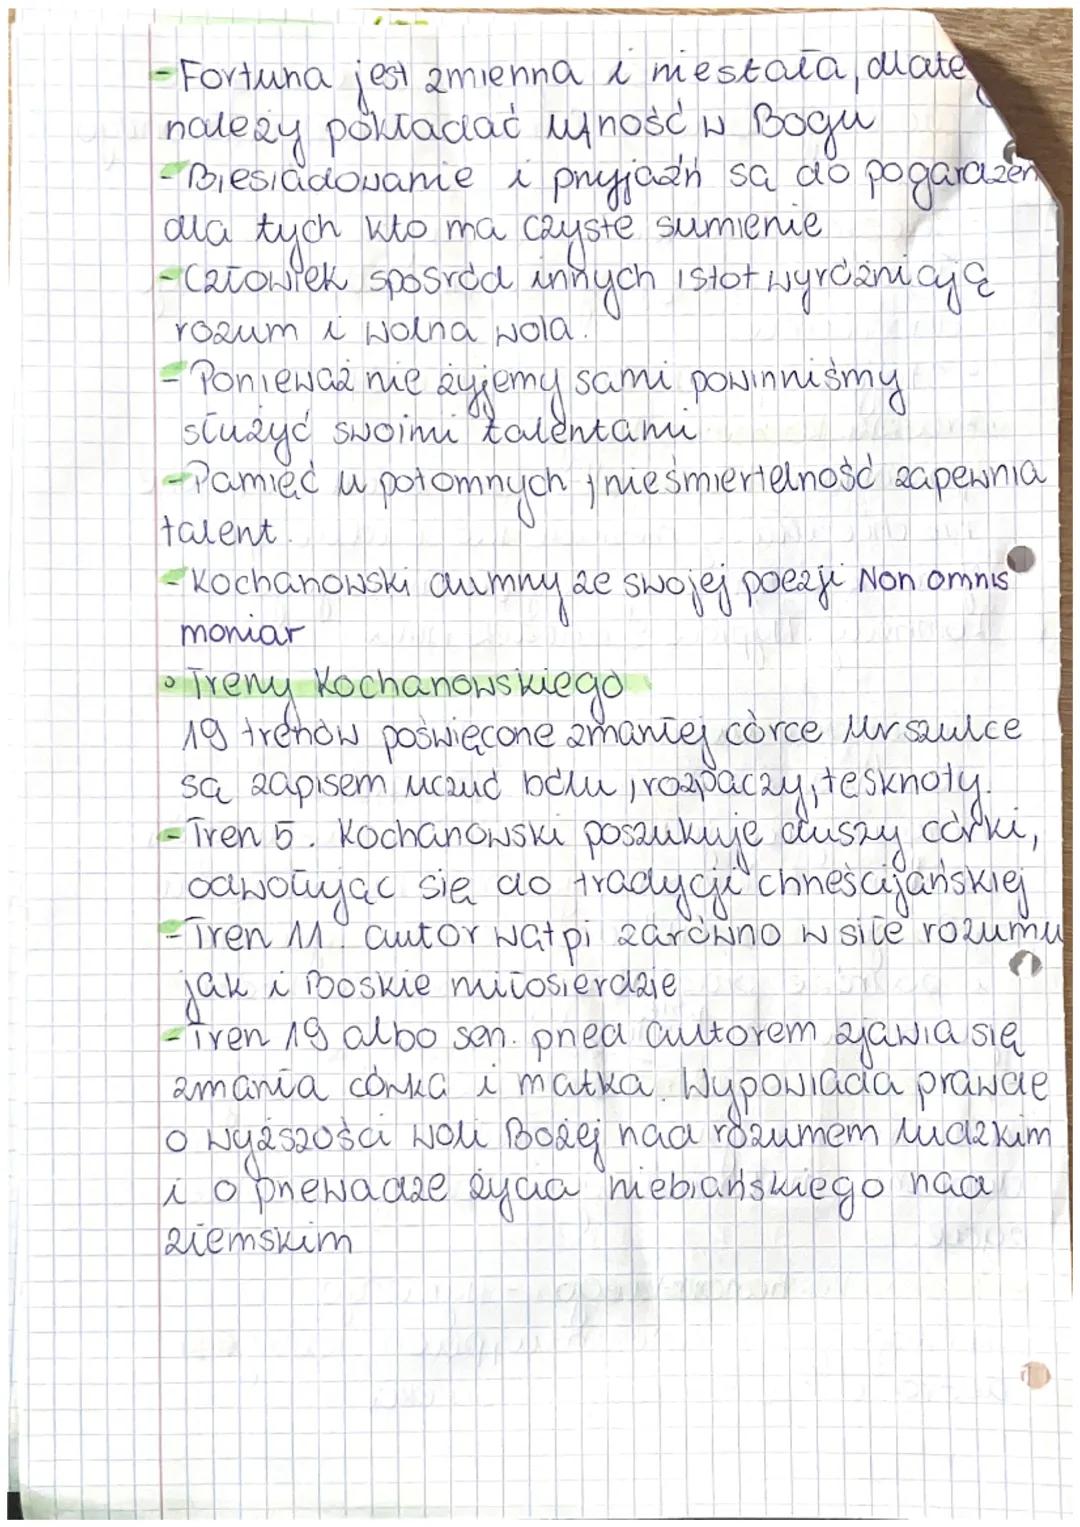 - Fortuna jest zmienna i niestała, dlate
należy pokładać ufność w Bogu
- Biesiadowanie i przyjaźń są do pogardzen
dla tych kto ma czyste sumienie
- Człowiek spośród innych istot wyróżniają
rozum i wolna wola.
- Ponieważ nie żyjemy sami powinniśmy
służyć swoimi talentami
- Pamięć u potomnych, nieśmiertelność zapewnia
talent.
- Kochanowski dumny ze swojej poezji Non omnis
moniar
• Treny Kochanowskiego
19 trenów poświęcone zmarłej córce Urszulce
są zapisem uczuć bólu, rozpaczy, tęsknoty.
- Tren 5. Kochanowski poszukuje duszy córki,
odwołując się do tradycji chrześcijańskiej
- Tren 11. autor wątpi zarówno w siłę rozumu
jak i Boskie miłosierdzie
- Tren 19 albo sen. przed autorem zjawia się
zmarła córka i matka. Wypowiada prawdę
o wyższości woli Bożej nad rozumem ludzkim
i o przewadze życia niebiańskiego nad
ziemskim